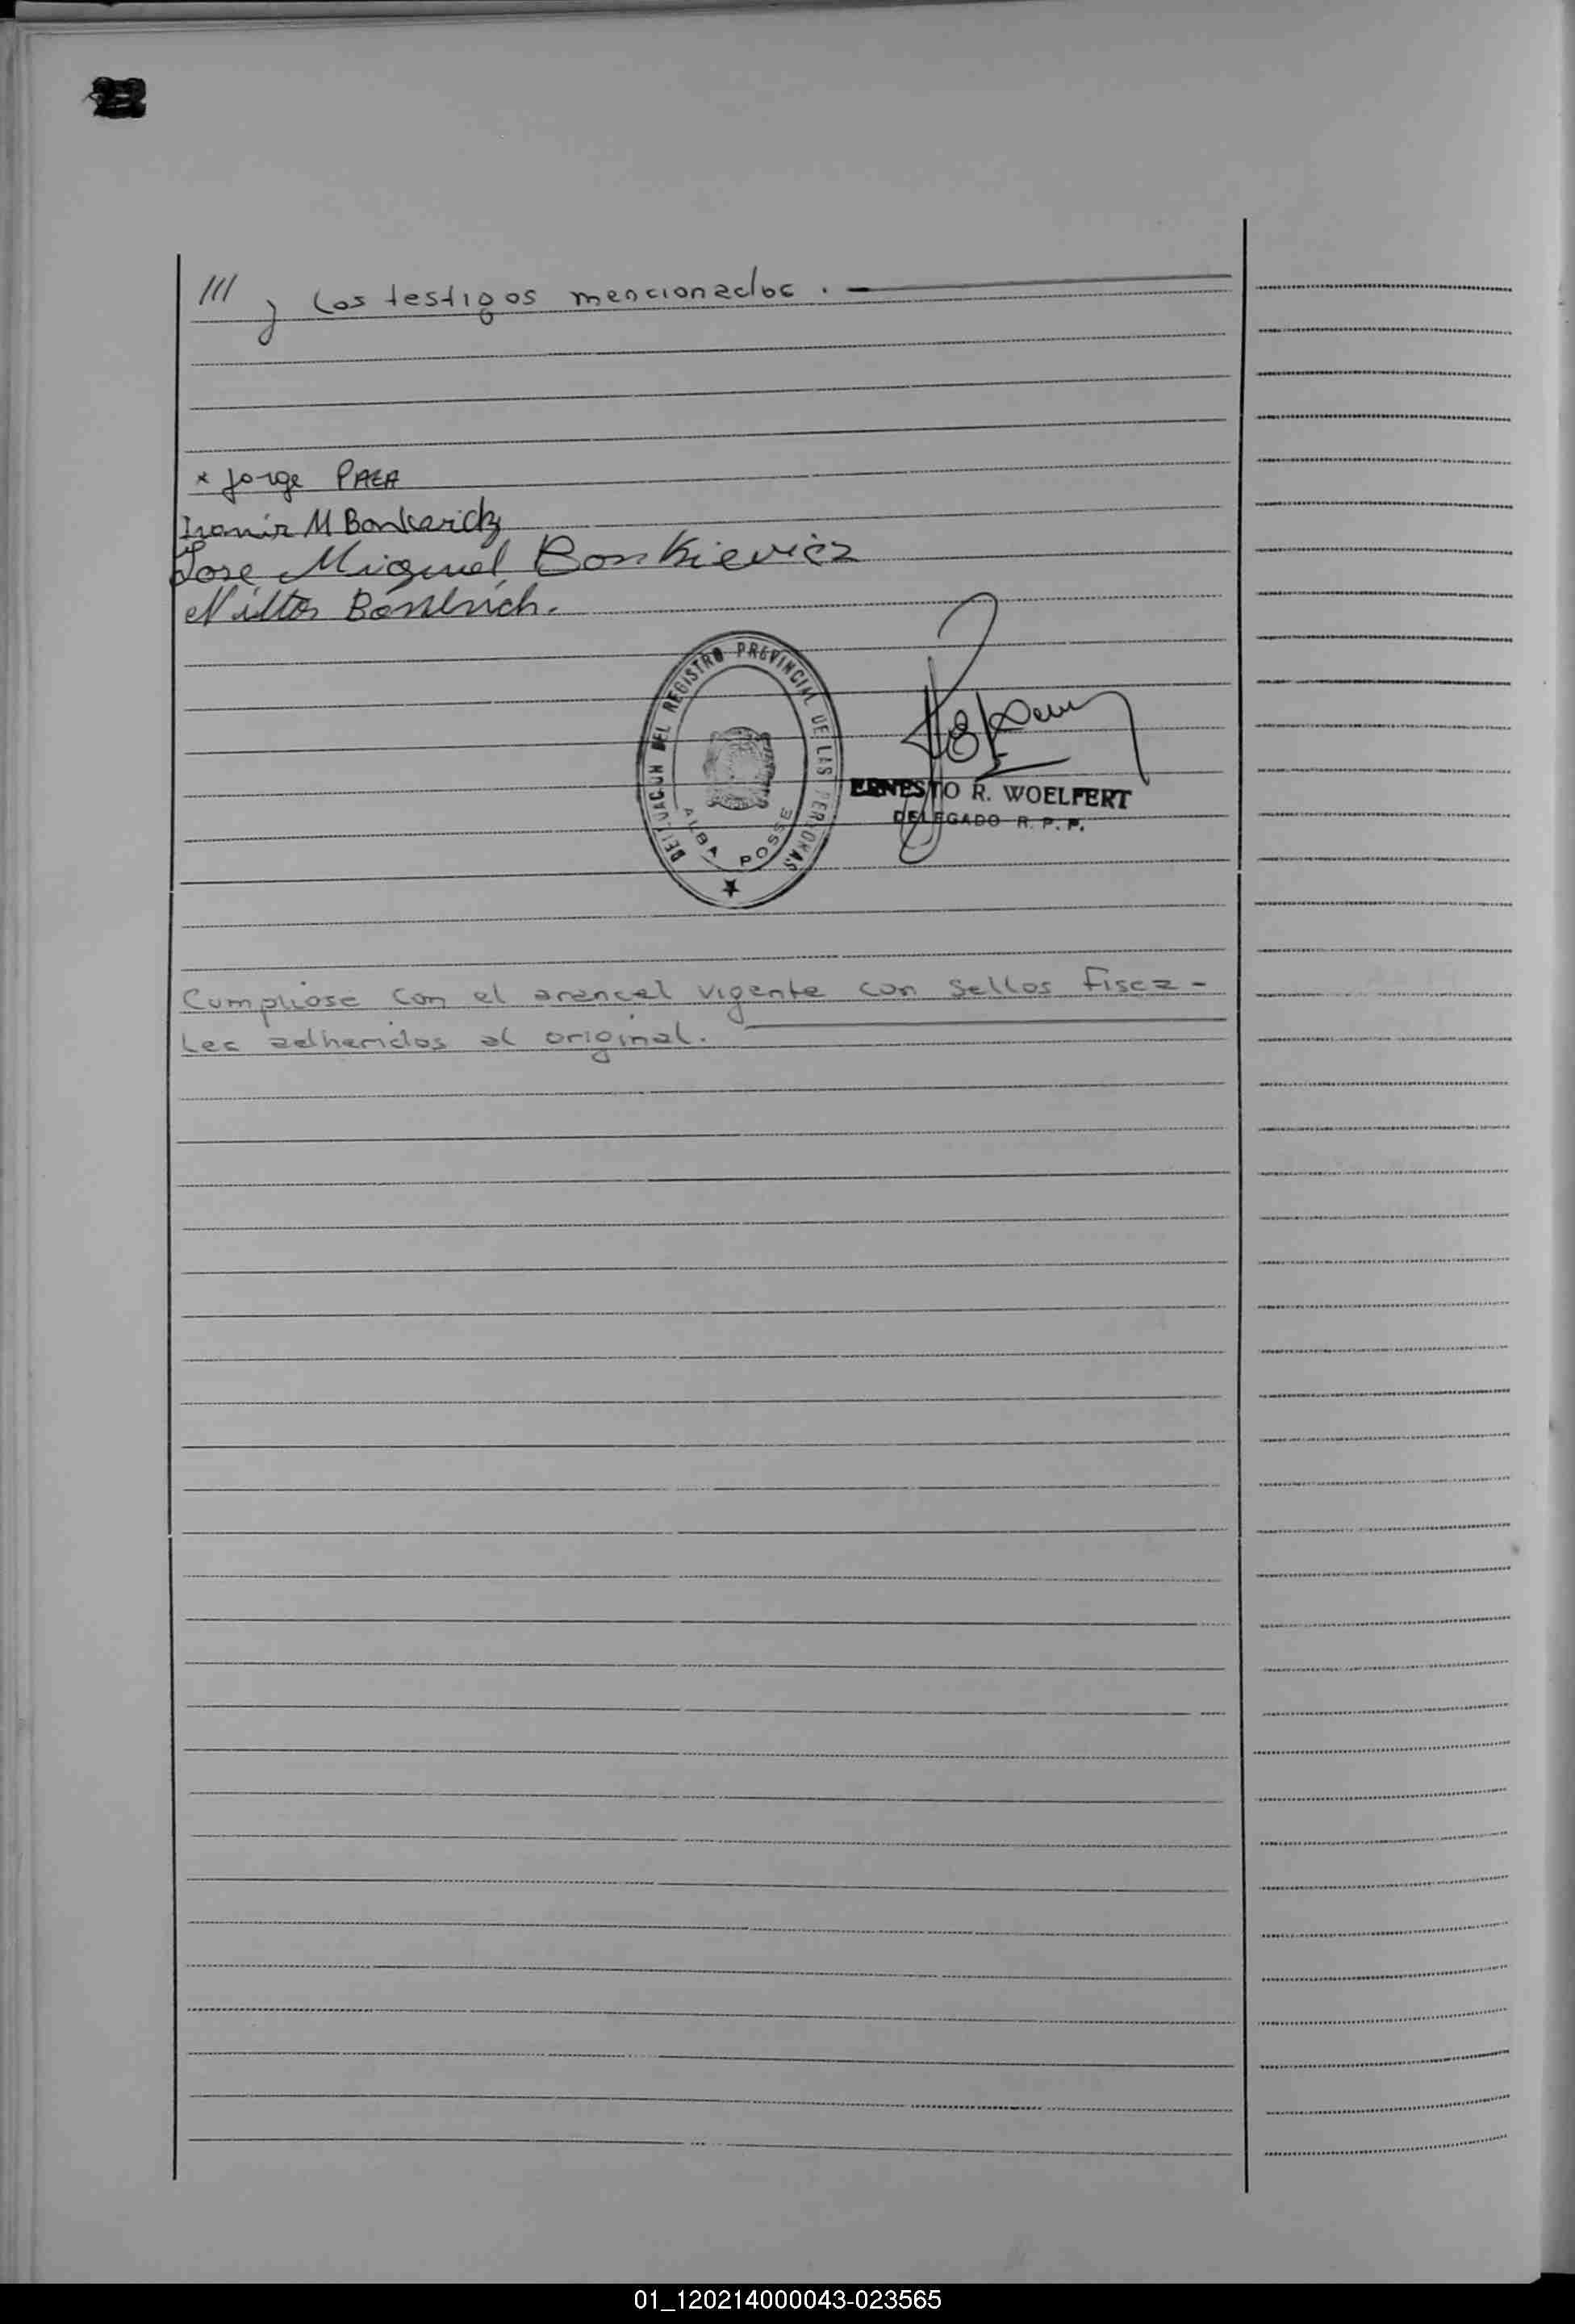 /// y los testigos mencionados.
x Jorge PAEA
M Bonkevicz
Jose Miguel Bonkievicz
Milton
DELEGACION DEL REGISTRO PROVINCIAL DE LAS PERSONAS
ALBA POSSE
ERNESTO R. WOELFERT
DELEGADO R. P. P.
Cumpliose con el arancel vigente con sellos fisca-
les adheridos al original.
01_120214000043-023565